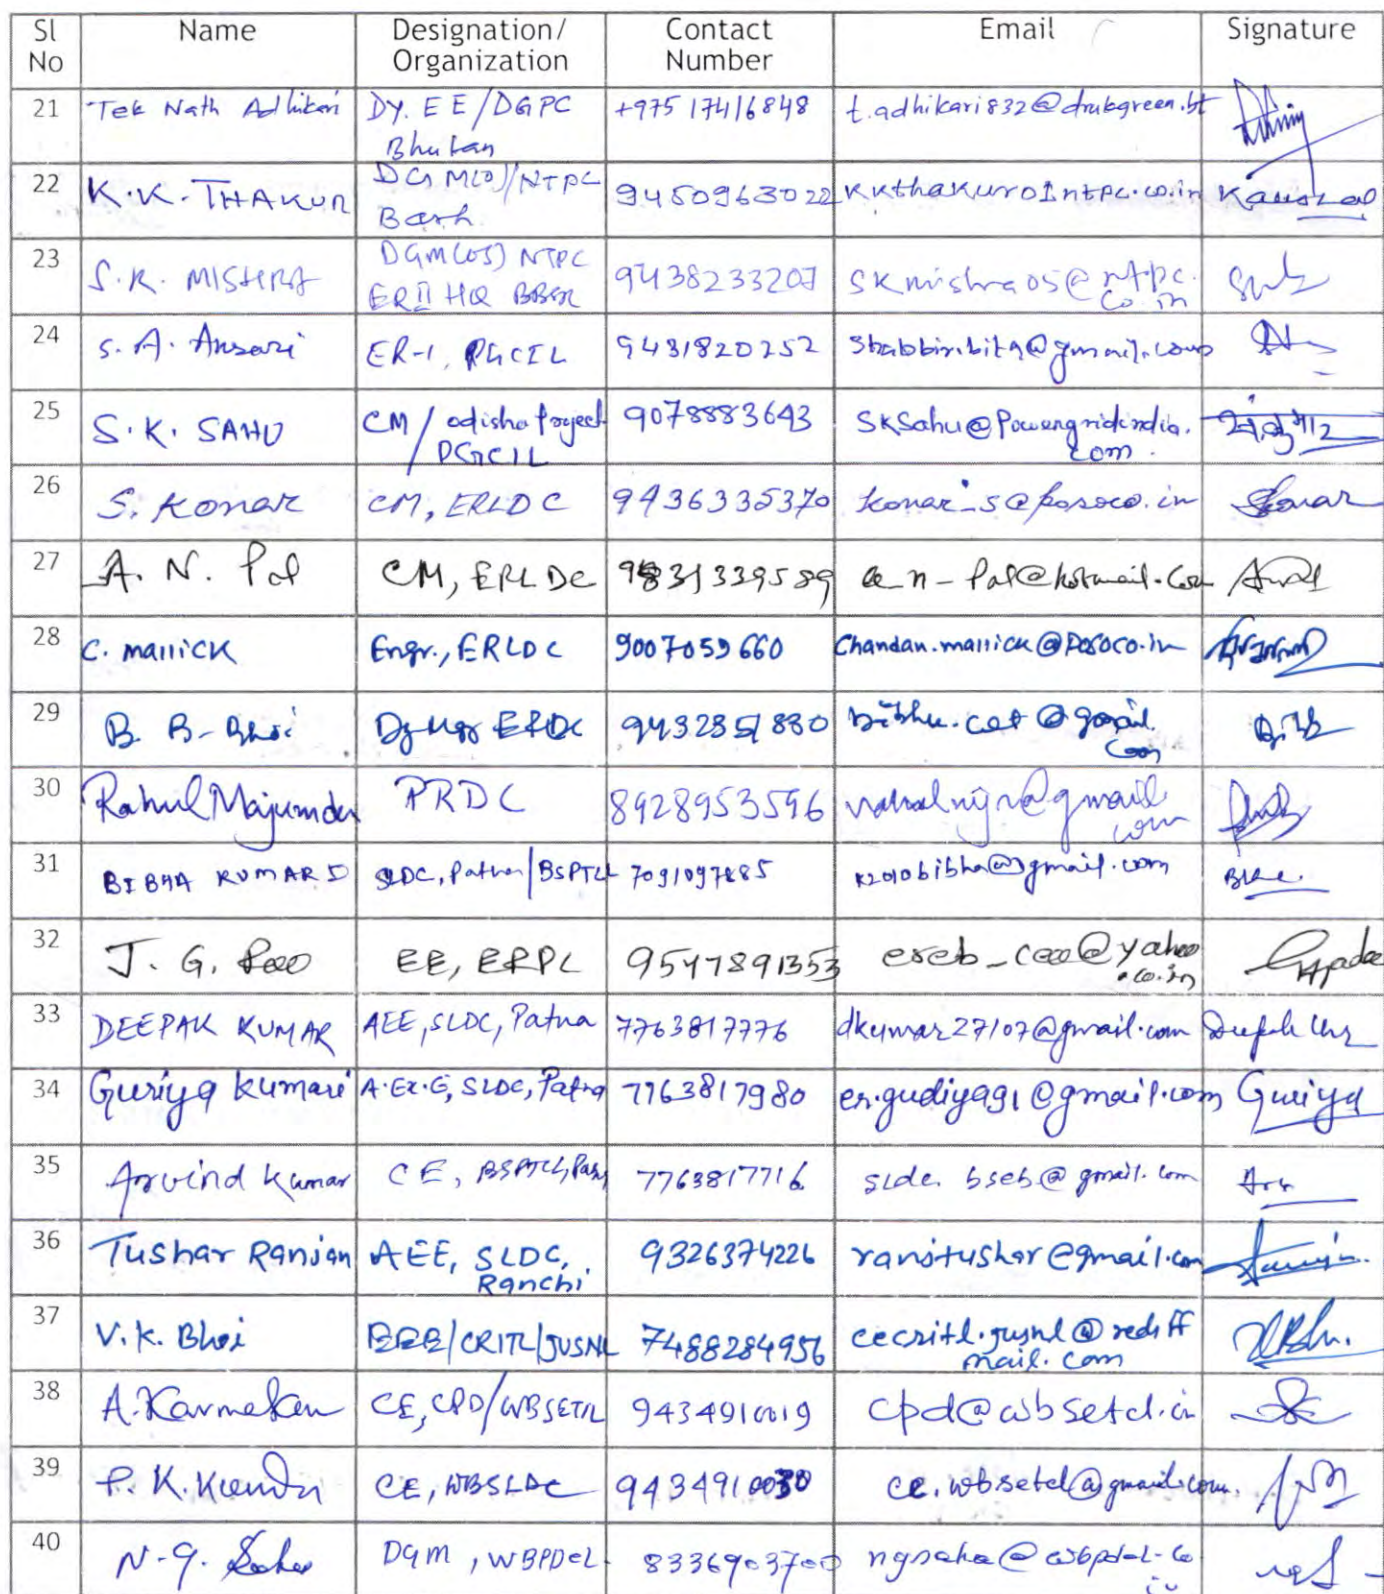 Sl No Name Designation/ Organization Contact Number Email Signature
21 Tek Nath Adhikari DY. EE/DGPC Bhutan +975 17416848 t.adhikari832@drukgreen.bt
22 K.K. THAKUR DGM(O)/NTPC Barh 9450963022 kkthakur01ntpc.co.in Kaushal
23 S.K. MISHRA DGM(OS) NTPC ERII HQ BBSR 9438233207 skmishra05@ntpc.co.in
24 S. A. Ansari ER-1, PGCIL 9431820252 shabbir.bit9@gmail.com
25 S.K. SAHU CM/ odisha Project PGCIL 9078883643 SKSahu@Powergridindia.com
26 S. Konar CM, ERLDC 9436335370 konar_s@posoco.in Skonar
27 A. N. Pal CM, ERLDC 9831339589 a_n_pal@hotmail.com
28 C. mallick Engr., ERLDC 9007059660 Chandan.mallick@Posoco.in
29 B. B. Bhoi Dy Mgr ERLDC bibhu.cet@gmail.com
30 Rahul Majumder PRDC 8928953596
31 BIBHA KUMARI SLDC, Patna/BSPTCL k2010bibha@gmail.com
32 J. G. Rao EE, ERPC 9547891353 ereb_cea@yahoo.co.in
33 DEEPAK KUMAR AEE, SLDC, Patna 7763817776 dkumar27107@gmail.com Deepak Kumar
34 Guriya Kumari A.Ex.E, SLDC, Patna 7763817980 er.gudiya91@gmail.com Guriya
35 Arvind Kumar CE, BSPTCL, Patna 7763817716 sldc.bseb@gmail.com
36 Tushar Ranjan AEE, SLDC, Ranchi 9326374226 ranjtushar@gmail.com
37 V.K. Bhoi EEE/CRITL/JUSNL 7488284956 cecritl.jusnl@rediffmail.com
38 A. Karmakar CE, CPD/WBSETCL 9434910019 cpd@wbsetcl.in
39 P. K. Kundu CE, WBSLDC 9434910030 ce.wbsetcl@gmail.com
40 N.G. Saha DGM, WBPDCL 8336903700 ngsaha@wbpdcl.co.in